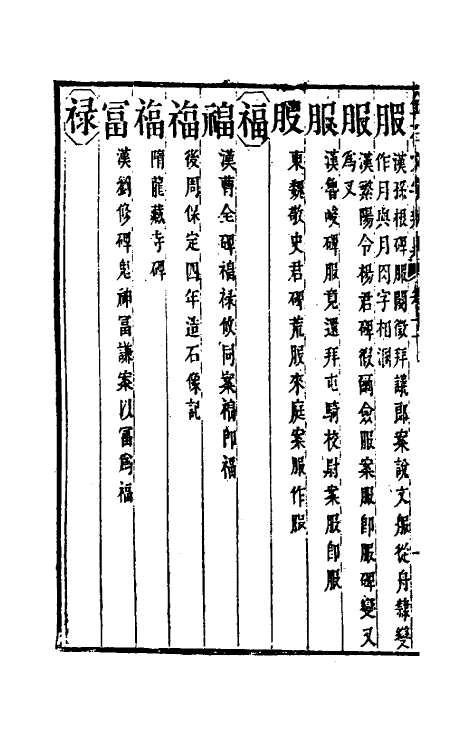 服 漢孫根碑服闋徵拜議郎案說文服從舟隸變作月與月肉字相溷
服 漢繁陽令楊君碑復爾僉服案服即服碑變又為叉
服 漢魯峻碑服竟還拜屯騎校尉案服即服
服 東魏敬史君碑荒服來庭案服作服
福
福 漢曹全碑福祿攸同案福即福
福 後周保定四年造石像記
福 隋龍藏寺碑
冨 漢劉修碑鬼神冨謙案以冨為福
祿